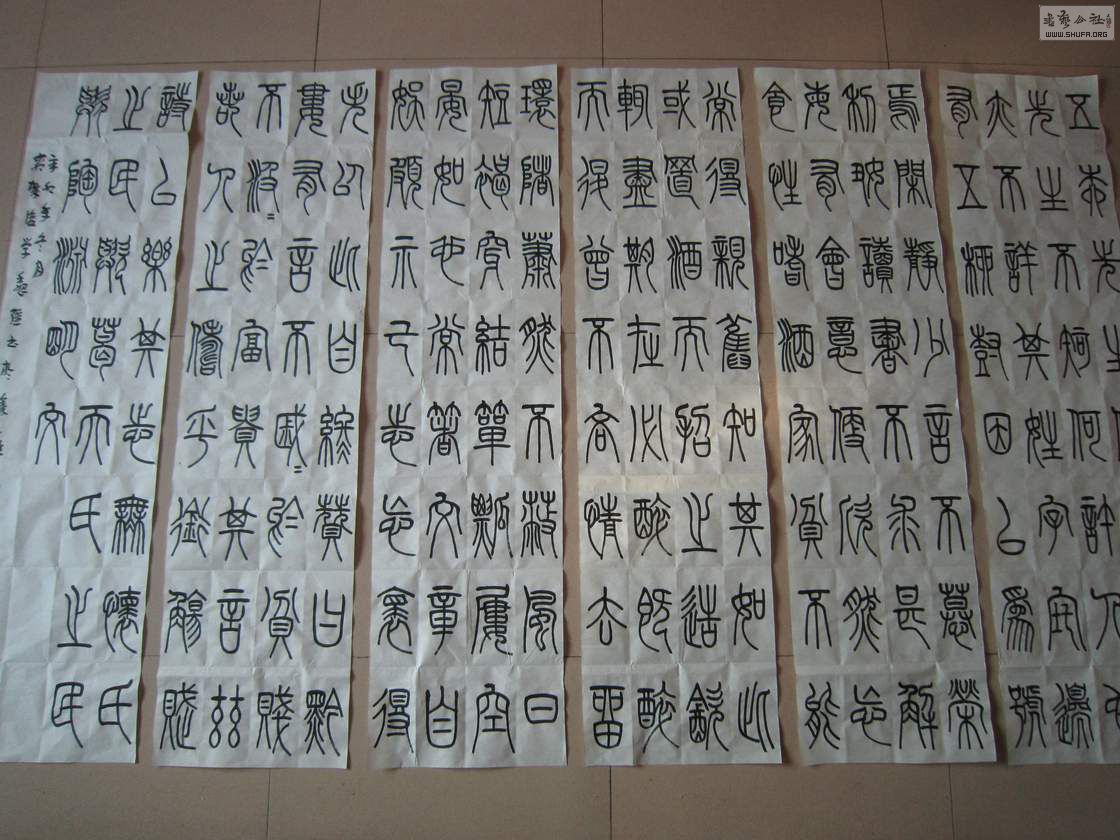 五柳先生
先生不知何許人也
亦不詳其姓字宅邊
有五柳樹因以為號
焉閑靜少言不慕榮
利好讀書不求甚解
每有會意便欣然忘
食性嗜酒家貧不能
常得親舊知其如此
或置酒而招之造飲
輒盡期在必醉既醉
而退曾不吝情去留
環堵蕭然不蔽風日
短褐穿結簞瓢屢空
晏如也常著文章自
娛頗示己志忘懷得
失以此自終贊曰黔
婁有言不戚〻於貧賤
不汲〻於富貴其言茲
若人之儔乎銜觴賦
詩以樂其志無懷氏
之民歟葛天氏之民
歟陶淵明文
WWW.SHUFA.ORG